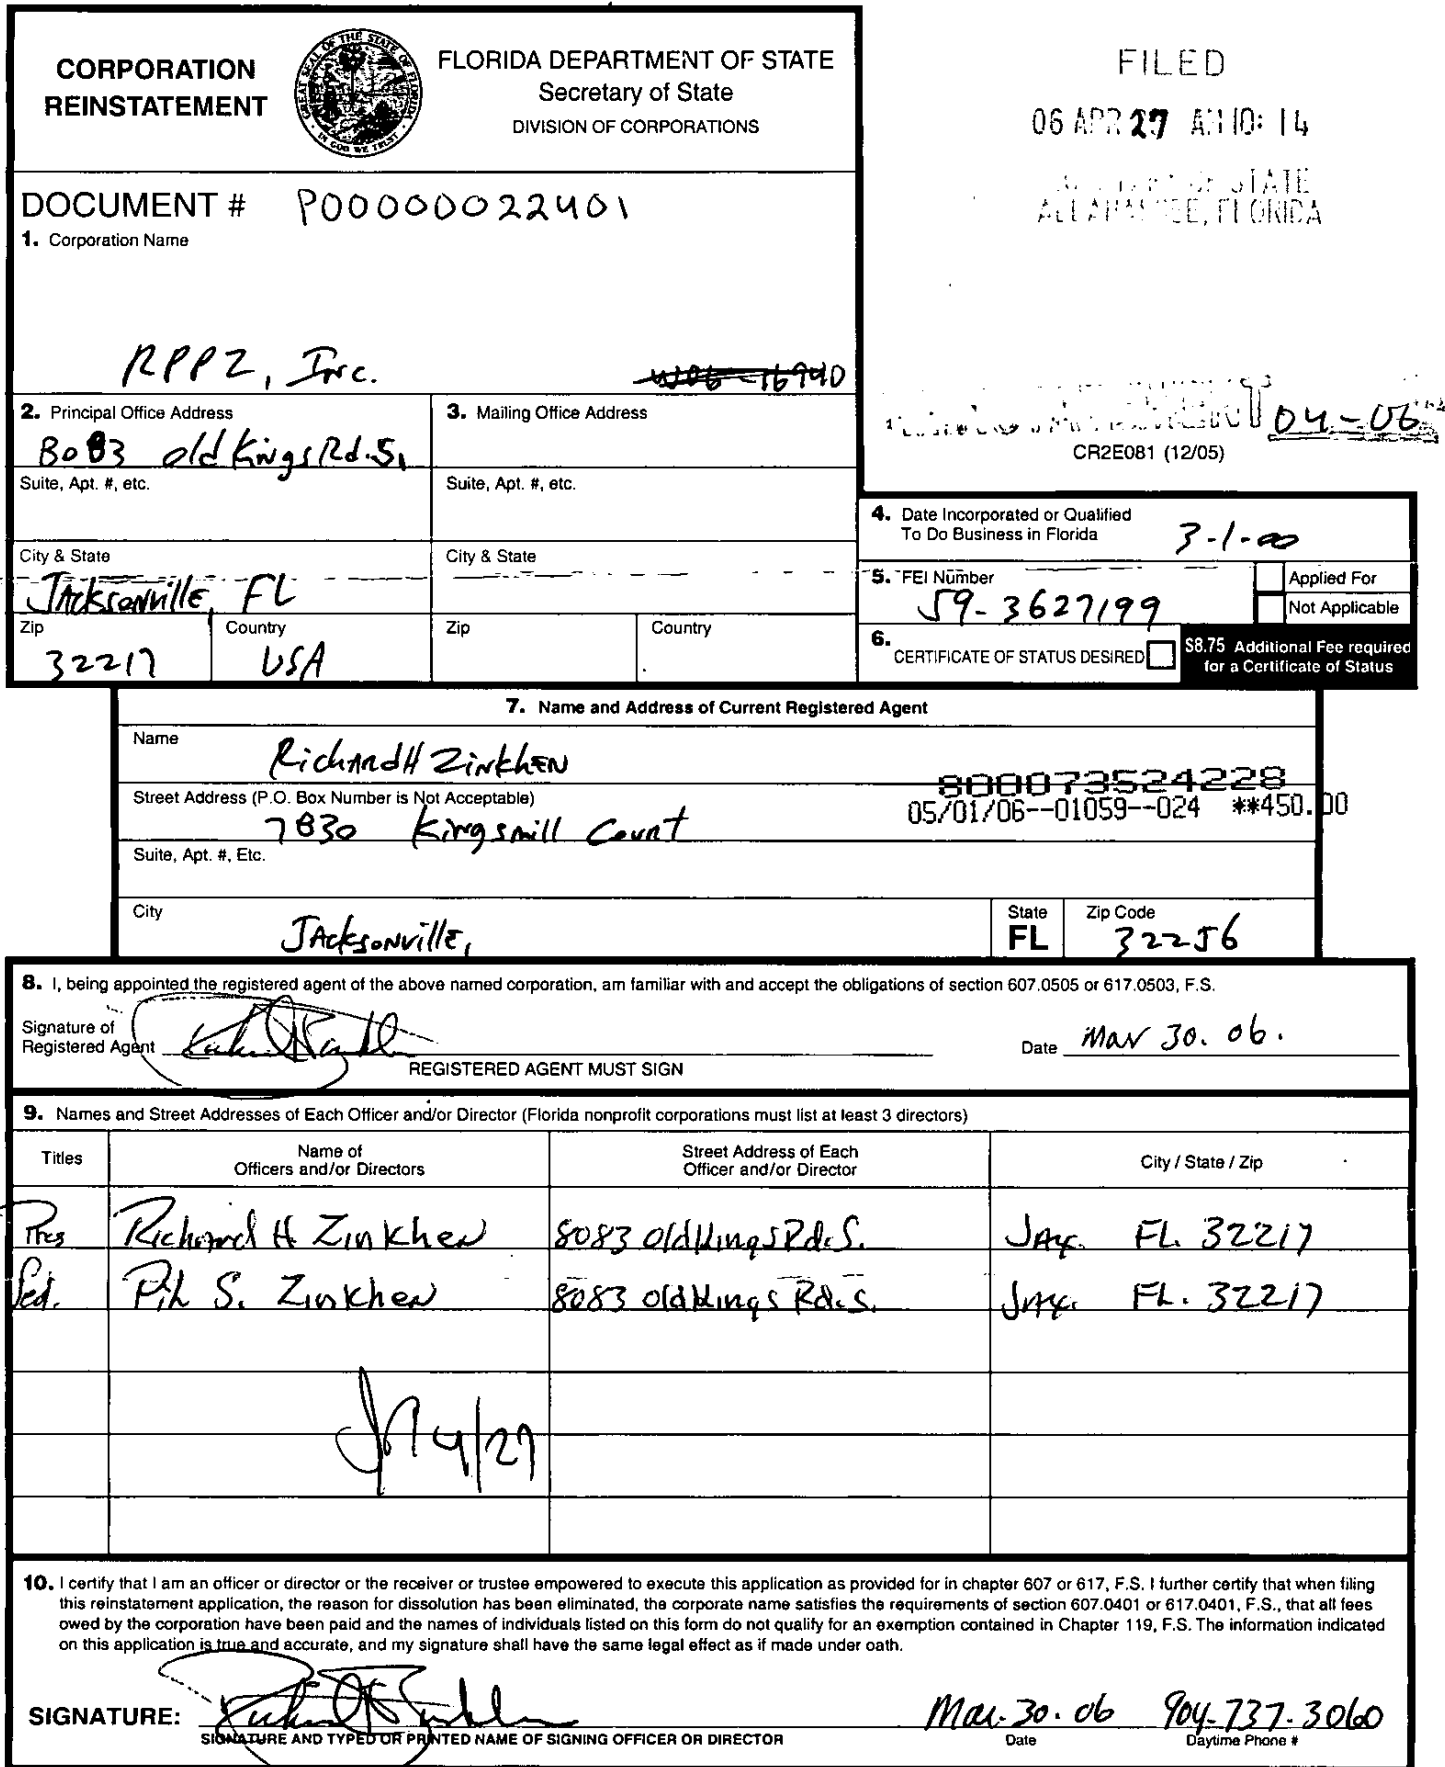 CORPORATION
REINSTATEMENT
GREAT SEAL OF THE STATE OF FLORIDA
IN GOD WE TRUST
FLORIDA DEPARTMENT OF STATE
Secretary of State
DIVISION OF CORPORATIONS
FILED
06 APR 27 AM 10: 14
OF STATE
FLORIDA
DOCUMENT # P00000022401
1. Corporation Name
RPPZ, Inc.
W06-16940
04-06
CR2E081 (12/05)
2. Principal Office Address
8083 Old Kings Rd. S.
3. Mailing Office Address
Suite, Apt. #, etc.
Suite, Apt. #, etc.
4. Date Incorporated or Qualified
To Do Business in Florida 3-1-00
City & State
Jacksonville, FL
City & State
5. FEI Number
59-3627199
Applied For
Not Applicable
Zip
32217
Country
USA
Zip
Country
6. CERTIFICATE OF STATUS DESIRED
$8.75 Additional Fee required
for a Certificate of Status
7. Name and Address of Current Registered Agent
Name
Richard H Zinkhen
800073524228
05/01/06--01059--024 **450.00
Street Address (P.O. Box Number is Not Acceptable)
7830 Kingsmill Court
Suite, Apt. #, Etc.
City
Jacksonville,
State
FL
Zip Code
32256
8. I, being appointed the registered agent of the above named corporation, am familiar with and accept the obligations of section 607.0505 or 617.0503, F.S.
Signature of
Registered Agent
Date Mar 30. 06.
REGISTERED AGENT MUST SIGN
9. Names and Street Addresses of Each Officer and/or Director (Florida nonprofit corporations must list at least 3 directors)
Titles
Name of
Officers and/or Directors
Street Address of Each
Officer and/or Director
City / State / Zip
Pres Richard H Zinkhen 8083 Old Kings Rd. S. Jax. FL. 32217
Zinkhen 8083 Old Kings Rd. S. Jax. FL. 32217
4/27
10. I certify that I am an officer or director or the receiver or trustee empowered to execute this application as provided for in chapter 607 or 617, F.S. I further certify that when filing
this reinstatement application, the reason for dissolution has been eliminated, the corporate name satisfies the requirements of section 607.0401 or 617.0401, F.S., that all fees
owed by the corporation have been paid and the names of individuals listed on this form do not qualify for an exemption contained in Chapter 119, F.S. The information indicated
on this application is true and accurate, and my signature shall have the same legal effect as if made under oath.
SIGNATURE:
Mar. 30. 06 904-737-3060
SIGNATURE AND TYPED OR PRINTED NAME OF SIGNING OFFICER OR DIRECTOR
Date
Daytime Phone #